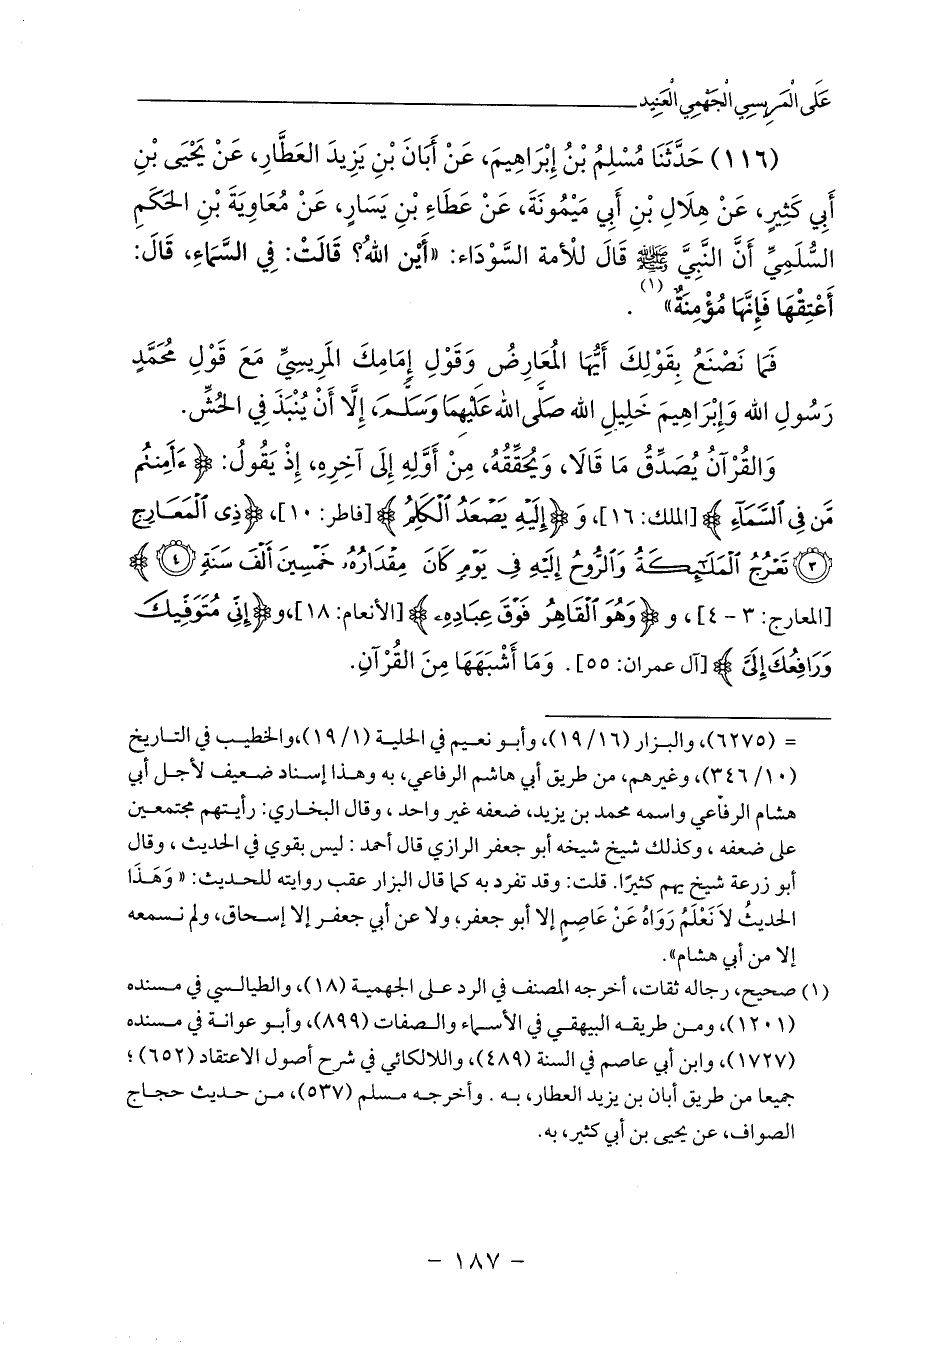 عَلَى الْمَرِيسِي الْجَهْمِي الْعَنِيد
(١١٦) حَدَّثَنَا مُسْلِمُ بْنُ إِبْرَاهِيمَ، عَنْ أَبَانَ بْنِ يَزِيدَ العَطَّارِ، عَنْ يَحْيَى بْنِ
أَبِي كَثِيرٍ، عَنْ هِلَالِ بْنِ أَبِي مَيْمُونَةَ، عَنْ عَطَاءِ بْنِ يَسَارٍ، عَنْ مُعَاوِيَةَ بْنِ الحَكَمِ
السُّلَمِيِّ أَنَّ النَّبِيَّ ﷺ قَالَ لْلأمة السَّوْدَاء: «أَيْن اللهُ؟ قَالَتْ: فِي السَّمَاءِ، قَالَ:
أَعْتِقْهَا فَإِنَّهَا مُؤْمِنَةٌ»(١) .
فَمَا نَصْنَعُ بِقَوْلِكَ أَيُّهَا المُعَارِضُ وَقَوْلِ إِمَامِكَ المَرِيسِيِّ مَعَ قَوْلِ مُحَمَّدٍ
رَسُولِ الله وَإِبْرَاهِيمَ خَلِيلِ الله صَلَّى الله عَلَيْهِمَا وَسَلَّمَ، إِلَّا أَنْ يُنْبَذَ فِي الحُشِّ.
وَالقُرْآنُ يُصَدِّقُ مَا قَالَا، وَيُحَقِّقُهُ، مِنْ أَوَّلِهِ إِلَى آخِرِهِ، إِذْ يَقُولُ: ﴿ءَأَمِنتُم
مَّن فِي ٱلسَّمَآءِ﴾ [الملك: ١٦]، وَ ﴿إِلَيْهِ يَصْعَدُ ٱلْكَلِمُ﴾ [فاطر: ١٠]، ﴿ذِى ٱلْمَعَارِجِ
(٣) تَعْرُجُ ٱلْمَلَٰٓئِكَةُ وَٱلرُّوحُ إِلَيْهِ فِى يَوْمٍ كَانَ مِقْدَارُهُۥ خَمْسِينَ أَلْفَ سَنَةٍ (٤)﴾
[المعارج: ٣ - ٤]، و ﴿وَهُوَ ٱلْقَاهِرُ فَوْقَ عِبَادِهِۦ﴾ [الأنعام: ١٨]،و﴿إِنِّى مُتَوَفِّيكَ
وَرَافِعُكَ إِلَىَّ﴾ [آل عمران: ٥٥]. وَمَا أَشْبَهَهَا مِنَ القُرْآنِ.
= (٦٢٧٥)، والبزار (١٩/١٦)، وأبو نعيم في الحلية (١٩/١)،والخطيب في التاريخ
(٣٤٦/١٠)، وغيرهم، من طريق أبي هاشم الرفاعي، به وهذا إسناد ضعيف لأجل أبي
هشام الرفاعي واسمه محمد بن يزيد، ضعفه غير واحد ، وقال البخاري: رأيتهم مجتمعين
على ضعفه ، وكذلك شيخ شيخه أبو جعفر الرازي قال أحمد : ليس بقوي في الحديث ، وقال
أبو زرعة شيخ يهم كثيرًا. قلت: وقد تفرد به كما قال البزار عقب روايته للحديث: « وَهَذَا
الحديثُ لاَ نَعْلَمُ رَوَاهُ عَنْ عَاصِمٍ إلا أبو جعفر، ولا عن أبي جعفر إلا إسحاق، ولم نسمعه
إلا من أبي هشام».
(١) صحيح، رجاله ثقات، أخرجه المصنف في الرد على الجهمية (١٨)، والطيالسي في مسنده
(١٢٠١)، ومن طريقه البيهقي في الأسماء والصفات (٨٩٩)، وأبو عوانة في مسنده
(١٧٢٧)، وابن أبي عاصم في السنة (٤٨٩)، واللالكائي في شرح أصول الاعتقاد (٦٥٢) ؛
جميعا من طريق أبان بن يزيد العطار، به . وأخرجه مسلم (٥٣٧)، من حديث حجاج
الصواف، عن يحيى بن أبي كثير، به.
- ١٨٧ -